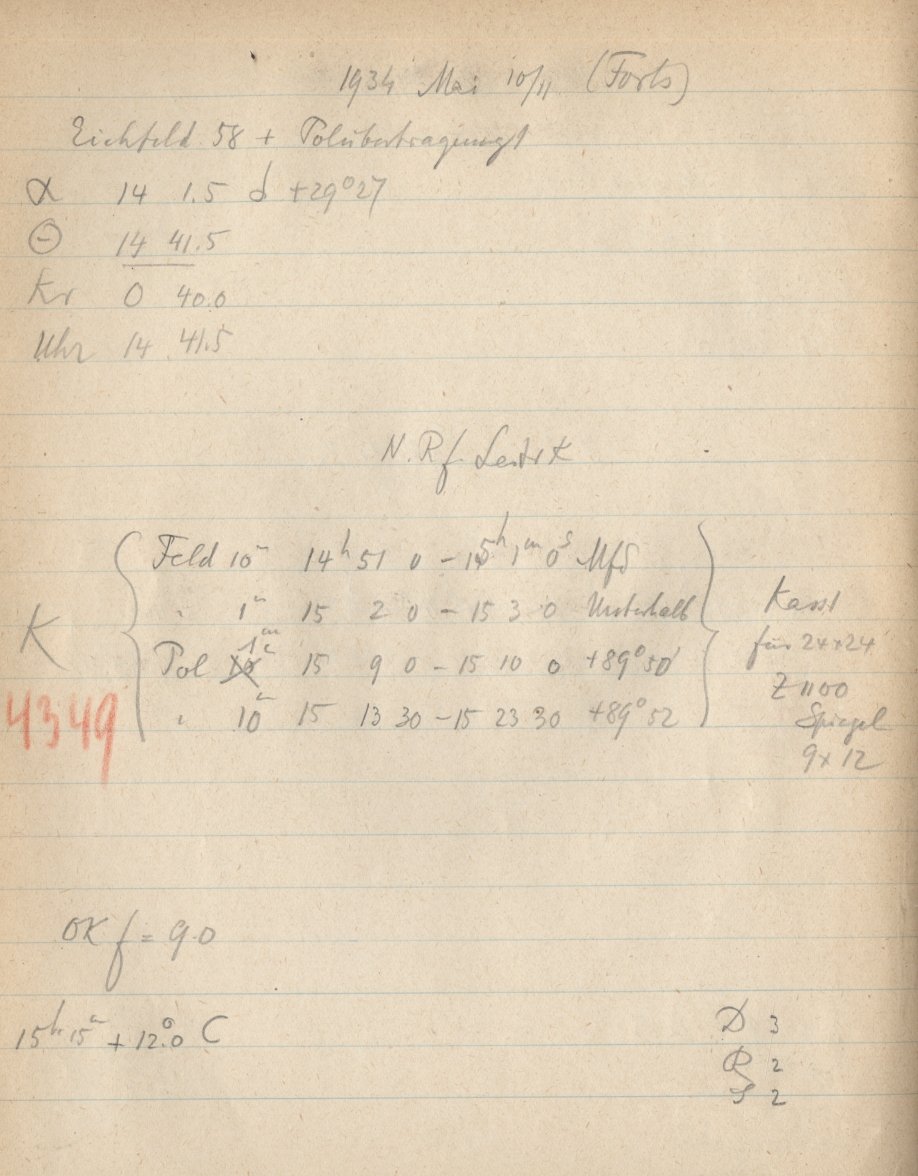 1934 Mai 10/11 (Forts)
Eichfeld 58 + Polübertragung
α 14 1.5 δ +29°27
Θ 14 41.5
Kr 0 40.0
Uhr 14 41.5
N. Rf.
Feld 10m 14h 51 0 - 15h 1m 0s
" 1m 15 2 0 - 15 3 0 Unterhalb
Pol 1m 15 9 0 - 15 10 0 +89°50'
" 10m 15 13 30 - 15 23 30 +89°52
K
4349
Kass
für 24x24
Z 1100
Spiegel
9x12
OK f = 9.0
15h 15m + 12.°0 C
D 3
R 2
S 2